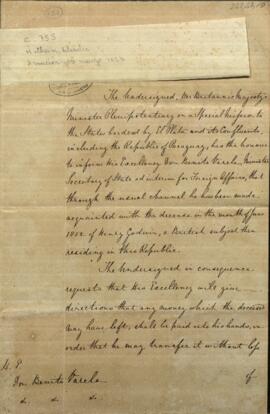 C 753
The Undersigned, Her Britannic Majesty's
Minister Plenipotentiary on a Special Mission to
the States bordered by El Plata and its Confluents,
including the Republic of Paraguay, has the honour
to inform His Excellency Don Benito Varela, Minister
Secretary of State ad interim for Foreign Affairs, that
through the usual channel he has been made
acquainted with the decease in the month of
of Henry Godwin, a British subject then
residing in this Republic.
The Undersigned in consequence
requests that His Excellency will give
directions that any money which the deceased
may have left, shall be paid into his hands, in
order that he may transfer it without loss
of
H. E.
Don Benito Varela
&c. &c. &c.